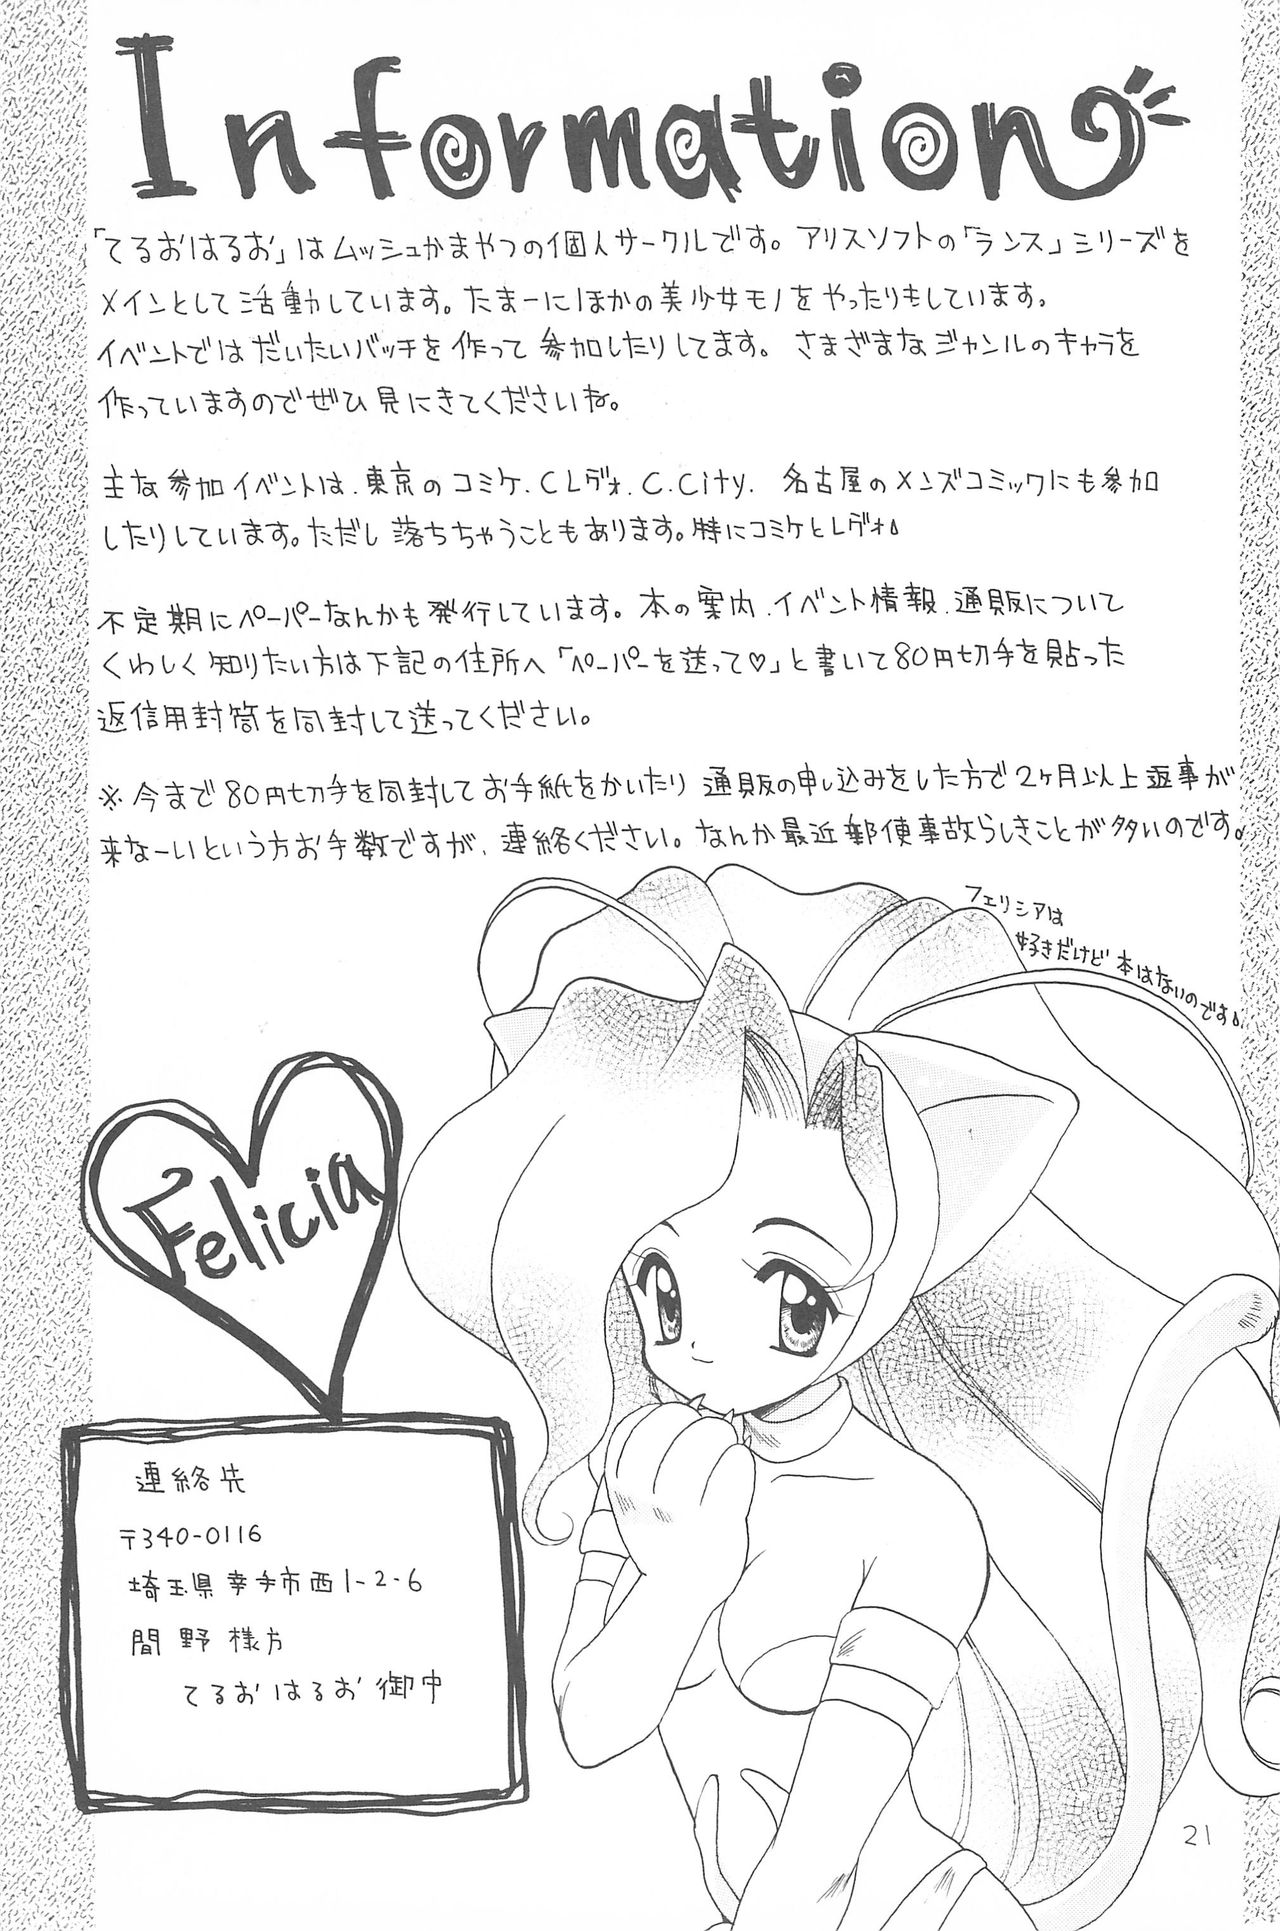 Information
「てるおはるお」はムッシュかまやつの個人サークルです。アリスソフトの「ランス」シリーズを
メインとして活動しています。たまーにほかの美少女モノをやったりもしています。
イベントではだいたいバッチを作って参加したりしてます。さまざまなジャンルのキャラを
作っていますのでぜひ見にきてくださいね。
主な参加イベントは、東京のコミケ、Cレヴォ、C.City、名古屋のメンズコミックにも参加
したりしています。ただし落ちちゃうこともあります。特にコミケとレヴォ
不定期にペーパーなんかも発行しています。本の案内、イベント情報、通販について
くわしく知りたい方は下記の住所へ「ペーパーを送って♡」と書いて80円切手を貼った
返信用封筒を同封して送ってください。
※今まで80円切手を同封してお手紙をかいたり通販の申し込みをした方で2ヶ月以上返事が
来なーいという方お手数ですが、連絡ください。なんか最近郵便事故らしきことが多いのです。
フェリシアは
好きだけど本はないのです
Felicia
連絡先
〒340-0116
埼玉県幸手市西1-2-6
間野様方
てるおはるお御中
21